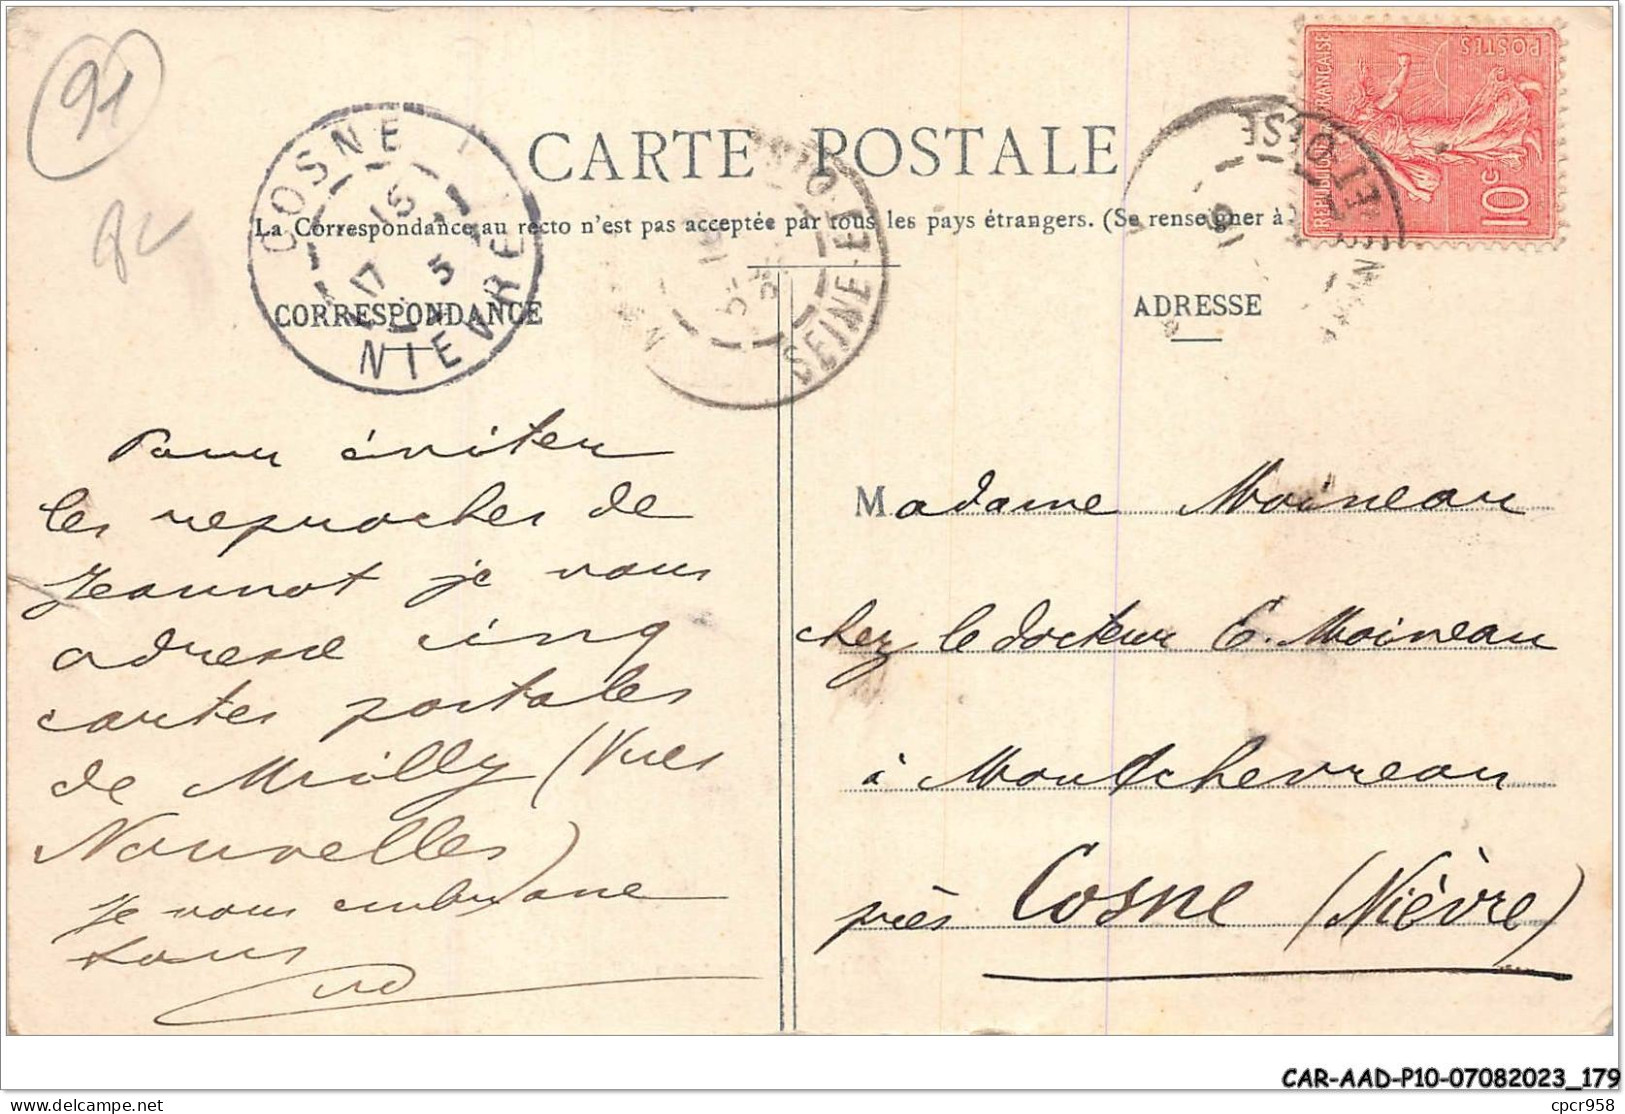 91
CARTE POSTALE
La Correspondance au recto n'est pas acceptée par tous les pays étrangers. (Se renseigner à
CORRESPONDANCE
ADRESSE
COSNE
NIEVRE
17
5
SEINE-ET-OISE
SEINE-ET-OISE
RÉPUBLIQUE FRANÇAISE
POSTES
10c
Pour éviter
les reproches de
Jeannot je vous
adresse cinq
cartes postales
de Milly (Vues
Nouvelles)
Je vous embrasse
tous
Madame Moineau
chez le docteur E. Moineau
à Montchevreau
près Cosne (Nièvre)
CAR-AAD-P10-07082023_179
delcampe.net
cpcr958